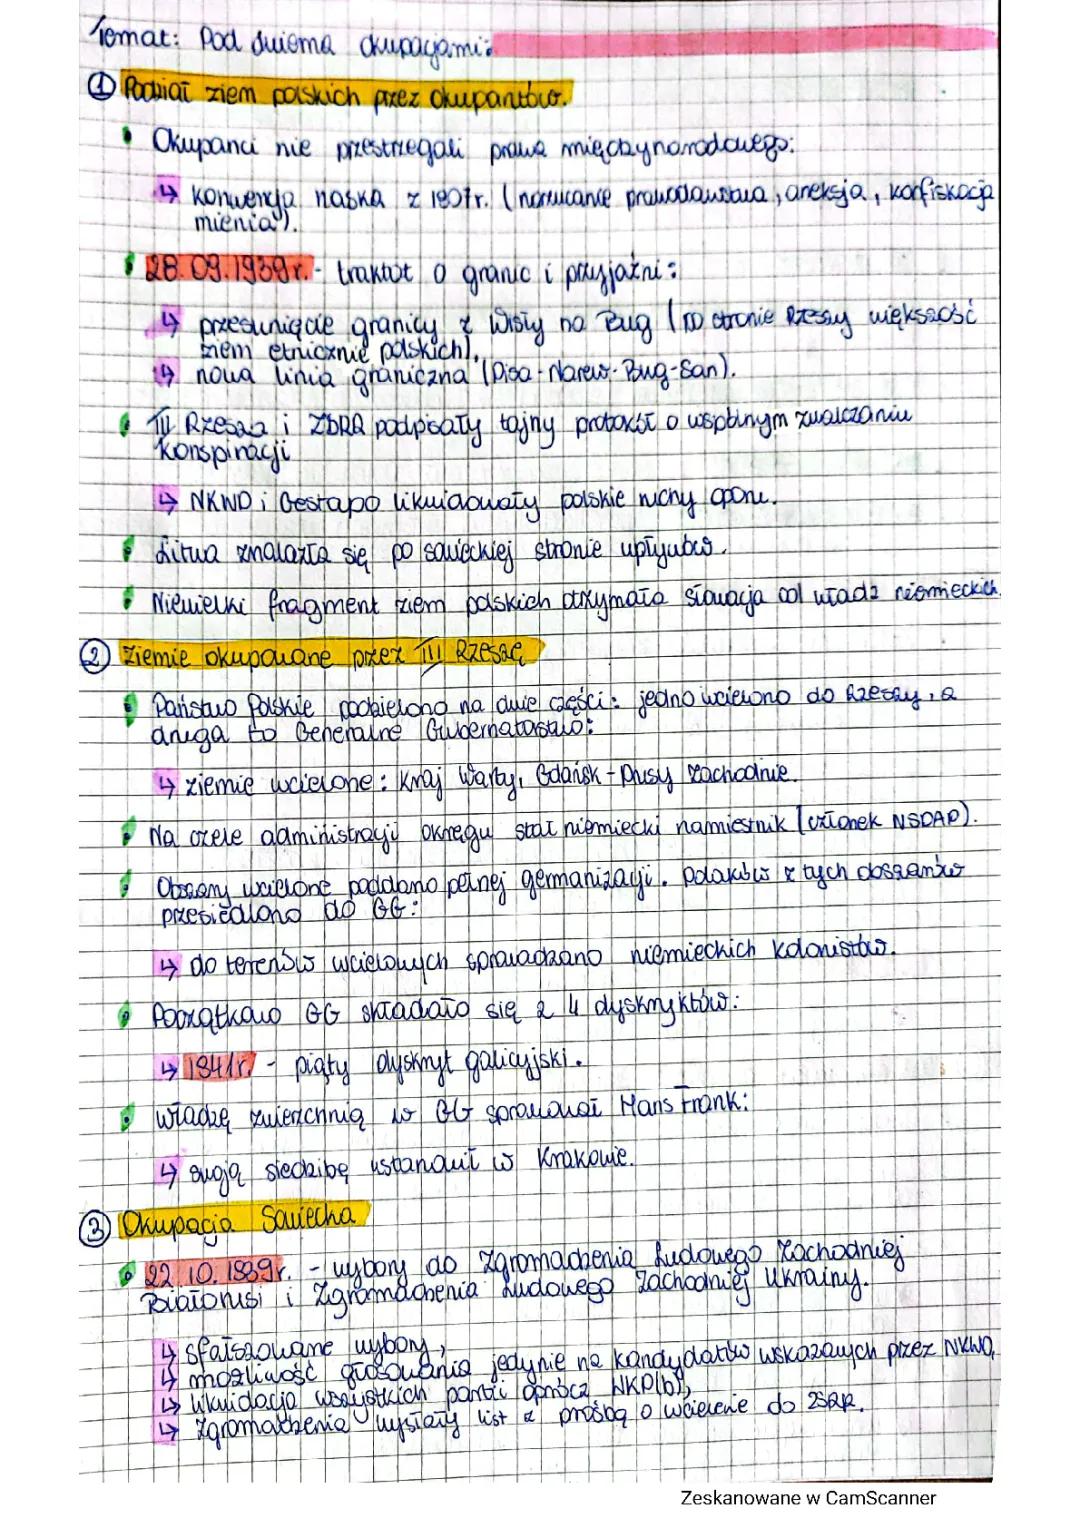 Temat: Pod dwiema okupacjami:
① Podział ziem polskich przez okupantów.
Okupanci nie przestrzegali prawa międzynarodowego:
↳ konwencja haska z 1907r. (narzucanie prawodawstwa, aneksja, konfiskacja
mienia).
28.09.1939r. - traktat o granic i przyjaźni:
↳ przesunięcie granicy z Wisły na Bug (po stronie Rzeszy większość
ziem etnicznie polskich),
↳ nowa linia graniczna (Pisa-Narew-Bug-San).
III Rzesza i ZSRR podpisały tajny protokół o wspólnym zwalczaniu
konspiracji
↳ NKWD i Gestapo likwidowały polskie ruchy oporu.
Litwa znalazła się po sowieckiej stronie wpływów.
Niewielki fragment ziem polskich otrzymała Słowacja od władz niemieckich.
② Ziemie okupowane przez III Rzeszę
Państwo Polskie podzielono na dwie części: jedno wcielono do Rzeszy, a
druga to Generalne Gubernatorstwo:
↳ ziemie wcielone: Kraj Warty, Gdańsk-Prusy Zachodnie.
Na czele administracji okręgu stał niemiecki namiestnik (członek NSDAP).
Obszary wcielone poddano pełnej germanizacji. Polaków z tych obszarów
przesiedlono do GG:
↳ do terenów wcielonych sprowadzano niemieckich kolonistów.
Początkowo GG składało się z 4 dystryktów:
↳ 1941r. - piąty dystrykt galicyjski.
Władzę zwierzchnią w GG sprawował Hans Frank:
↳ swoją siedzibę ustanowił w Krakowie.
③ Okupacja Sowiecka
22.10.1939r. - wybory do Zgromadzenia Ludowego Zachodniej
Białorusi i Zgromadzenia Ludowego Zachodniej Ukrainy.
↳ sfałszowane wybory,
↳ możliwość głosowania jedynie na kandydatów wskazanych przez NKWD,
↳ likwidacja wszystkich partii oprócz WKP(b),
↳ Zgromadzenia wysłały list z prośbą o wcielenie do ZSRR.
Zeskanowane w CamScanner